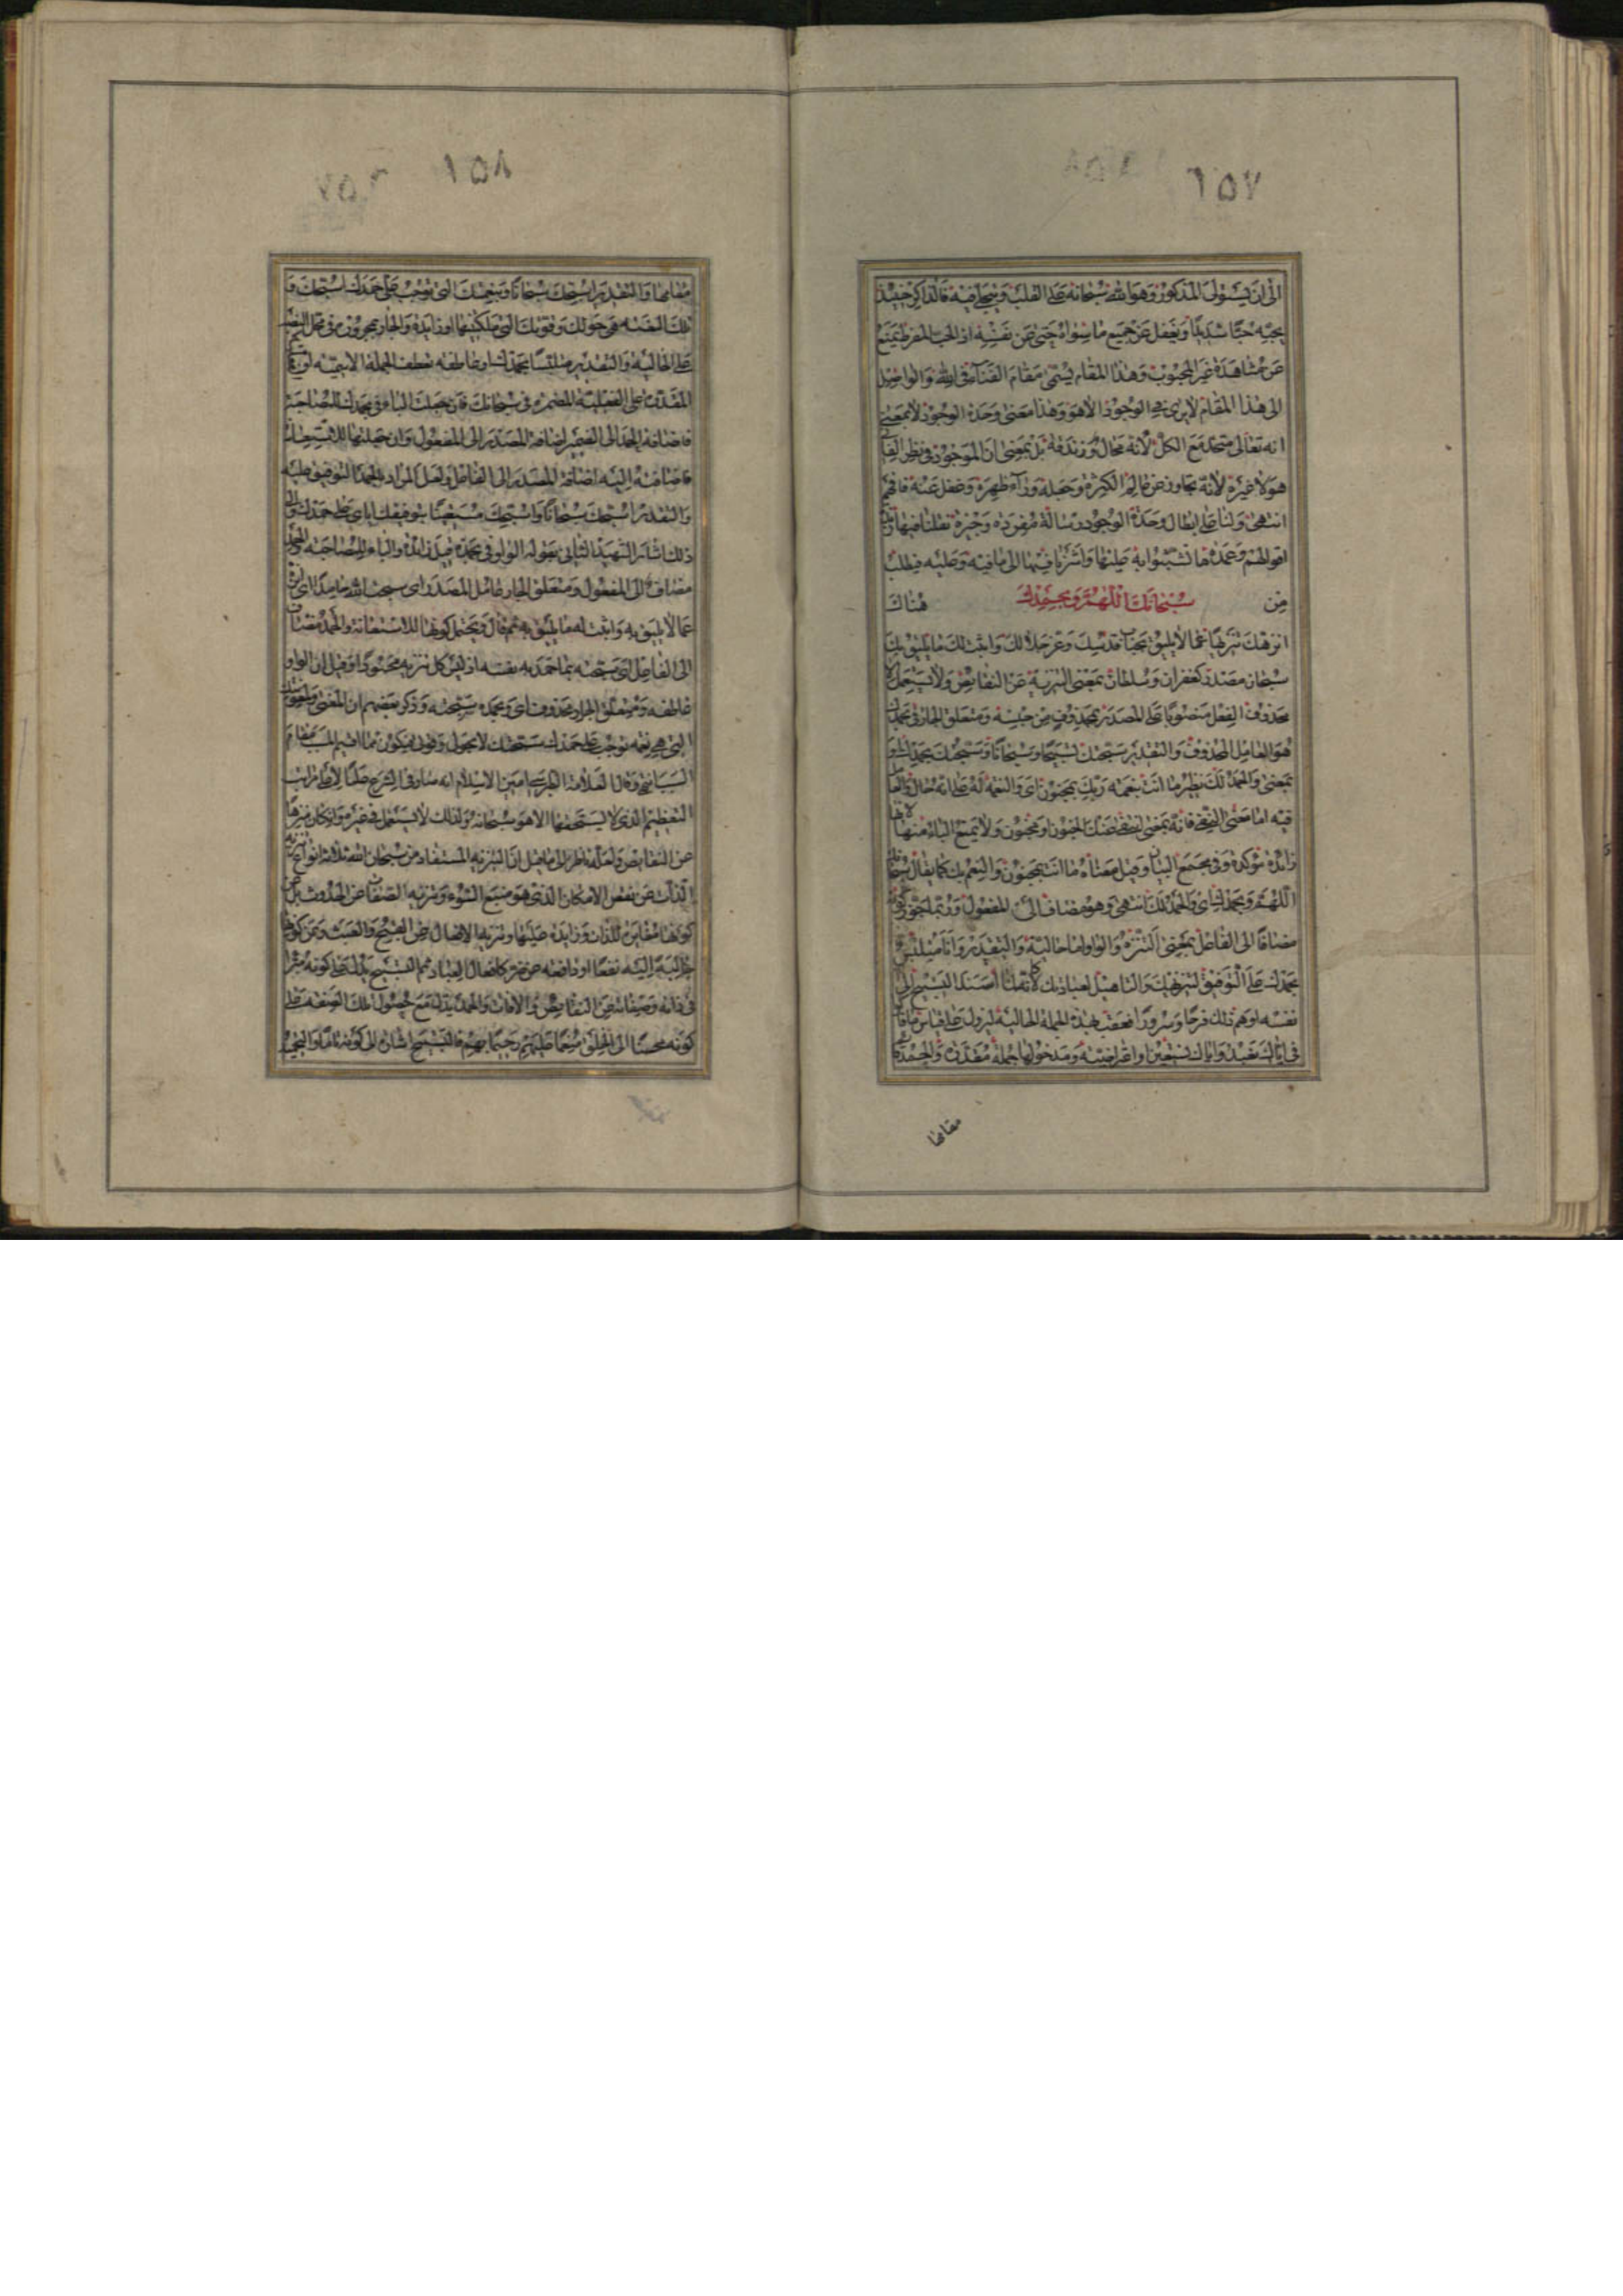 ١٥٧
الى ان يستولى المذكور وهو الله سبحانه على القلب ويتجلى فيه فالذاكر حينئذ
يحبه حبا شديدا ويغفل عن جميع ما سواه حتى عن نفسه اذ الحب المفرط يمنع
عن مشاهدة غير المحبوب وهذا المقام يسمى مقام الفناء فى الله والواصل
الى هذا المقام لا يرى فى الوجود الا هو وهذا معنى وحدة الوجود لا بمعنى
انه تعالى متحد مع الكل لانه محال وزندقة بل بمعنى ان الموجود فى نظر الفانى
هو لا غيره لانه تجاوز عن عالم الكثرة وجعله وراء ظهره وغفل عنه فافهم
انتهى ولنا على ابطال وحدة الوجود رسالة مفردة وجيزة نقلنا فيها
اقوالهم وعمدة ما تشبثوا به عليها واشرنا فيها الى ما فيه وعليه فيطلب
من هناك سبحانك اللهم وبحمدك
انزهك تنزيها عما لا يليق بجناب قدسك وعز جلالك واثبت لك ما يليق بك
سبحان مصدر كغفران وسلطان بمعنى التنزيه عن النقايص ولا يستعمل الا
محذوف الفعل منصوبا على المصدر بمحذوف من جنسه ومتعلق الجار فى بحمدك
هو العامل المحذوف والتقدير سبحتك تسبيحا وسبحانا وسبحتك بحمدك او
بمعنى والحمد لك نظير ما انت بنعمة ربك بمجنون اى والنعمة له على انه حال والعامل
فيه اما معنى النفى فانه بمعنى انتفى عنك الجنون او مجنون ولا يمنع الباء منها لانها
زائدة مؤكدة وفى مجمع البيان وقيل معناه ما انت بمجنون والنعم بك كما يقال سبحانك
اللهم وبحمدك اى والحمد لك انتهى وهو مضاف الى المفعول وربما جوز كونه
مضافا الى الفاعل بمعنى التنزه والواو اما حالية والتقدير وانا متلبس
بحمدك على التوفيق لتنزيهك والتاهيل لعبادتك كانه لما اسند التسبيح الى
نفسه اوهم ذلك فرحا وسرورا فعقب بهذه الجملة الحالية ليزول على قياس ما قال
فى اياك نعبد واياك نستعين او اعتراضية ومدخولها جملة مقدرة والحمد
مقامها
١٥٨
مقامها والتقدير اسبحك سبحانا وبنعمتك التى توجب على حمدك اسبحك و
تلك النعمة هى حولك وقوتك التى ملكتنيها او زايدة والجار ومجروره فى محل النصب
على الحالية والتقدير متلبسا بحمدك او عاطفة تعطف الجملة الاسمية
المقدرة على الفعلية المضمرة فى سبحانك فان جعلت الباء فى بحمدك للمصاحبة
فاضافة الحمد الى الضمير اضافة المصدر الى المفعول وان جعلتها للاستعانة
فاضافته اليه اضافة المصدر الى الفاعل ولعل المراد بالحمد التوفيق عليه
والتقدير اسبحك سبحانا واسبحك مستعينا بتوفيقك اياى على حمدك والى
ذلك اشار الشهيد الثانى بقوله الواو فى بحمده قيل زائدة والباء للمصاحبة والحمد
مضاف الى المفعول ومتعلق الجار عامل المصدر اى سبحت الله حامدا اى نزهته
عما لا يليق به واثبت له ما يليق به ثم قال ويحتمل كونها للاستعانة والحمد مضاف
الى الفاعل اى سبحته بما حمد به نفسه اذ ليس كل تنزيه محمودا وقيل ان الواو
عاطفة ومتعلق الجار محذوف اى وبحمده سبحته وذكر بعضهم ان المعنى
التى هى نعمة توجب على حمدك سبحتك لا بحولى وقوتى فيكون مما اقيم المسبب مقام
السبب انتهى وقال العلامة الطبرسى امين الاسلام انه صار فى الشرع علما لاعلى مراتب
التعظيم الذى لا يستحقها الا هو سبحانه ولذلك لا يستعمل فى غيره وان كان منزها
عن النقايص ولعله ناظر الى ما قيل ان التنزيه المستفاد من سبحان الله ثلاثة انواع تنزيه
الذات عن نقص الامكان الذى هو منبع السوء وتنزيه الصفات عن الحدوث بل عن
كونها مغايرة للذات وزايدة عليها وتنزيه الافعال عن القبيح والعبث وعن كونها
جالبة اليه نفعا او دافعة عنه ضرا كافعال العباد ثم التسبيح يدل على كونه منزها
فى ذاته وصفاته عن النقايص والافات والحمد يدل مع حصول تلك الصفة على
كونه محسنا الى الخلق منعما عليهم رحيما بهم فالتسبيح اشارة الى كونه تاما والتحميد